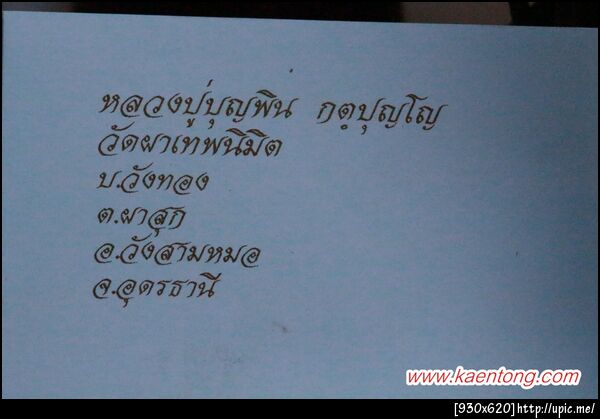 หลวงปู่บุญพิน กตฺปุญฺโญ
วัดผาเทพนิมิต
บ.วังทอง
ต.ผาสุก
อ.วังสามหมอ
จ.อุดรธานี
www.kaentong.com
[930x620]http://upic.me/